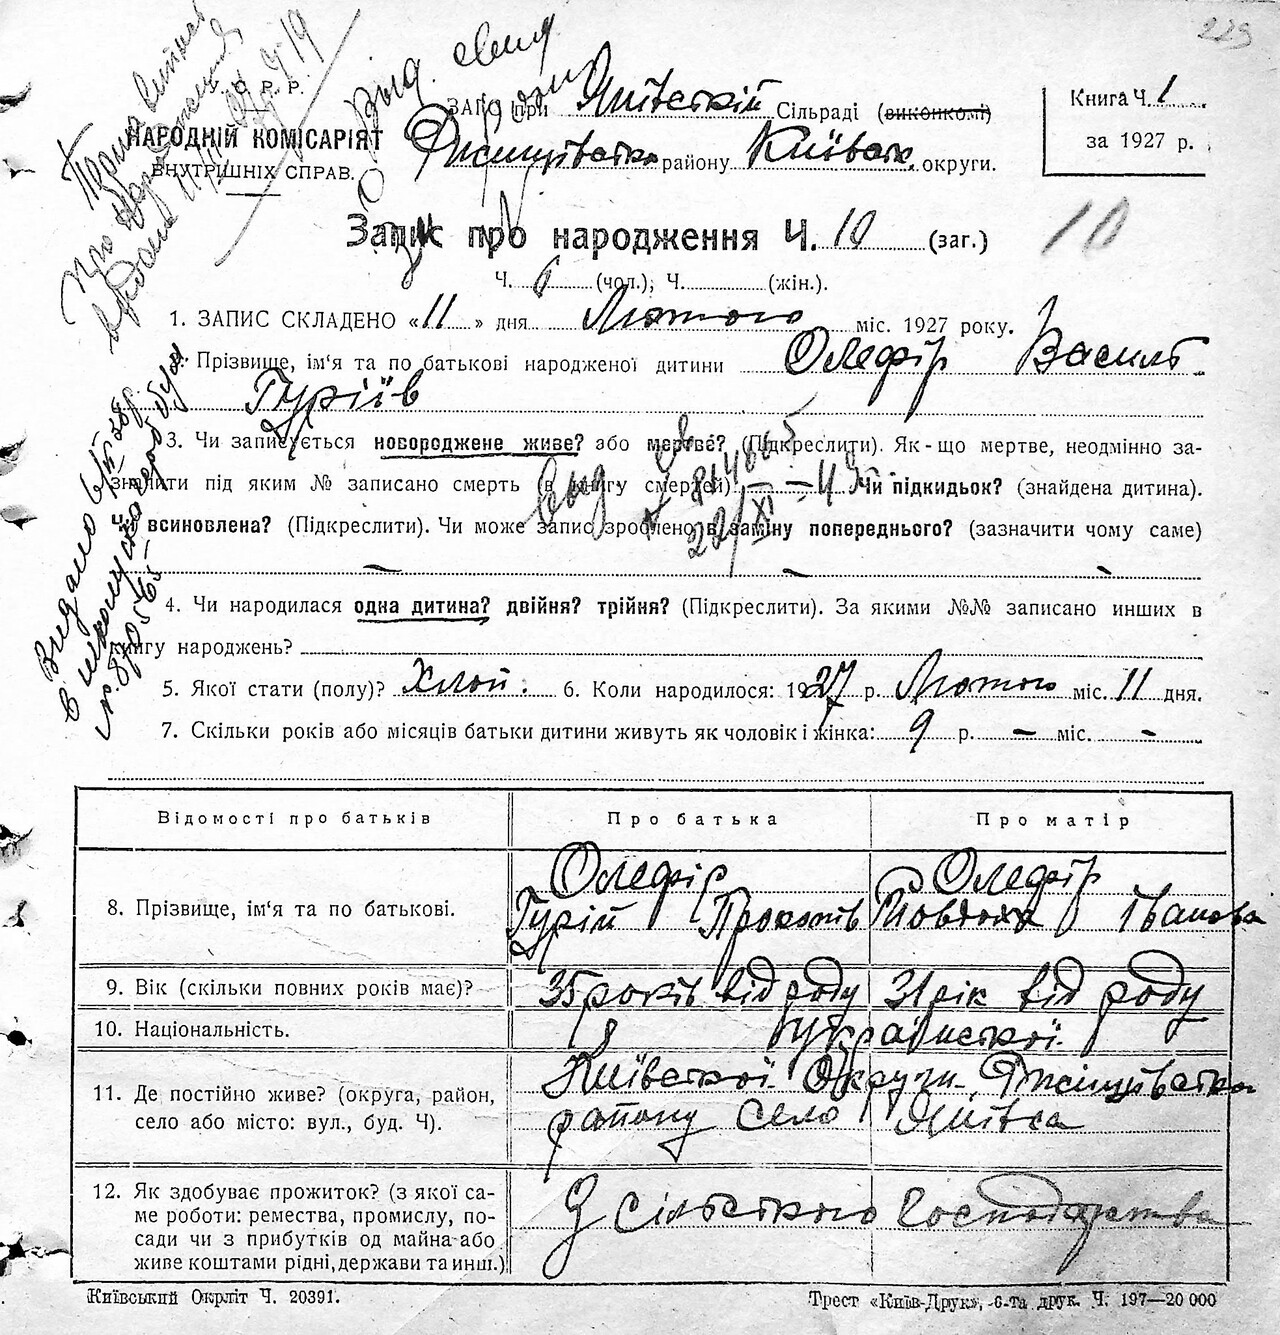 229
У.С.Р.Р.
НАРОДНІЙ КОМІСАРІЯТ
ВНУТРІШНІХ СПРАВ.
ЗАГС при Сільраді (виконкомі)
району Київськ. округи.
Книга Ч. 1
за 1927 р.
Запис про народження Ч. 10 (заг.)
10
Ч. 6 (чол.); Ч. (жін.).
1. ЗАПИС СКЛАДЕНО «11» дня Лютого міс. 1927 року.
2. Прізвище, ім'я та по батькові народженої дитини Олефір Василь
Гуріїв
3. Чи записується новороджене живе? або мертве? (Підкреслити). Як-що мертве, неодмінно за-
значити під яким № записано смерть (в книгу смертей) Чи підкидьок? (знайдена дитина).
Чи всиновлена? (Підкреслити). Чи може запис зроблено в заміну попереднього? (зазначити чому саме)
4. Чи народилася одна дитина? двійня? трійня? (Підкреслити). За якими №№ записано инших в
книгу народжень?
5. Якої стати (полу)? Хлоп. 6. Коли народилося: 1927 р. Лютого міс. 11 дня.
7. Скільки років або місяців батьки дитини живуть як чоловік і жінка: 9 р. — міс. —
Відомості про батьків Про батька Про матір
8. Прізвище, ім'я та по батькові. Олефір Олефір
Гурій Прокопів Явдоха Іванова
9. Вік (скільки повних років має)? 35 років від роду 31 рік від роду
10. Національність. української
11. Де постійно живе? (округа, район,
село або місто: вул., буд. Ч). Київської Округи
району село
12. Як здобуває прожиток? (з якої са-
ме роботи: ремества, промислу, по-
сади чи з прибутків од майна або
живе коштами рідні, держави та инш.) З сільського господарства
Київський Окрліт Ч. 20391.
Трест «Київ-Друк», 6-та друк. Ч. 197—20 000